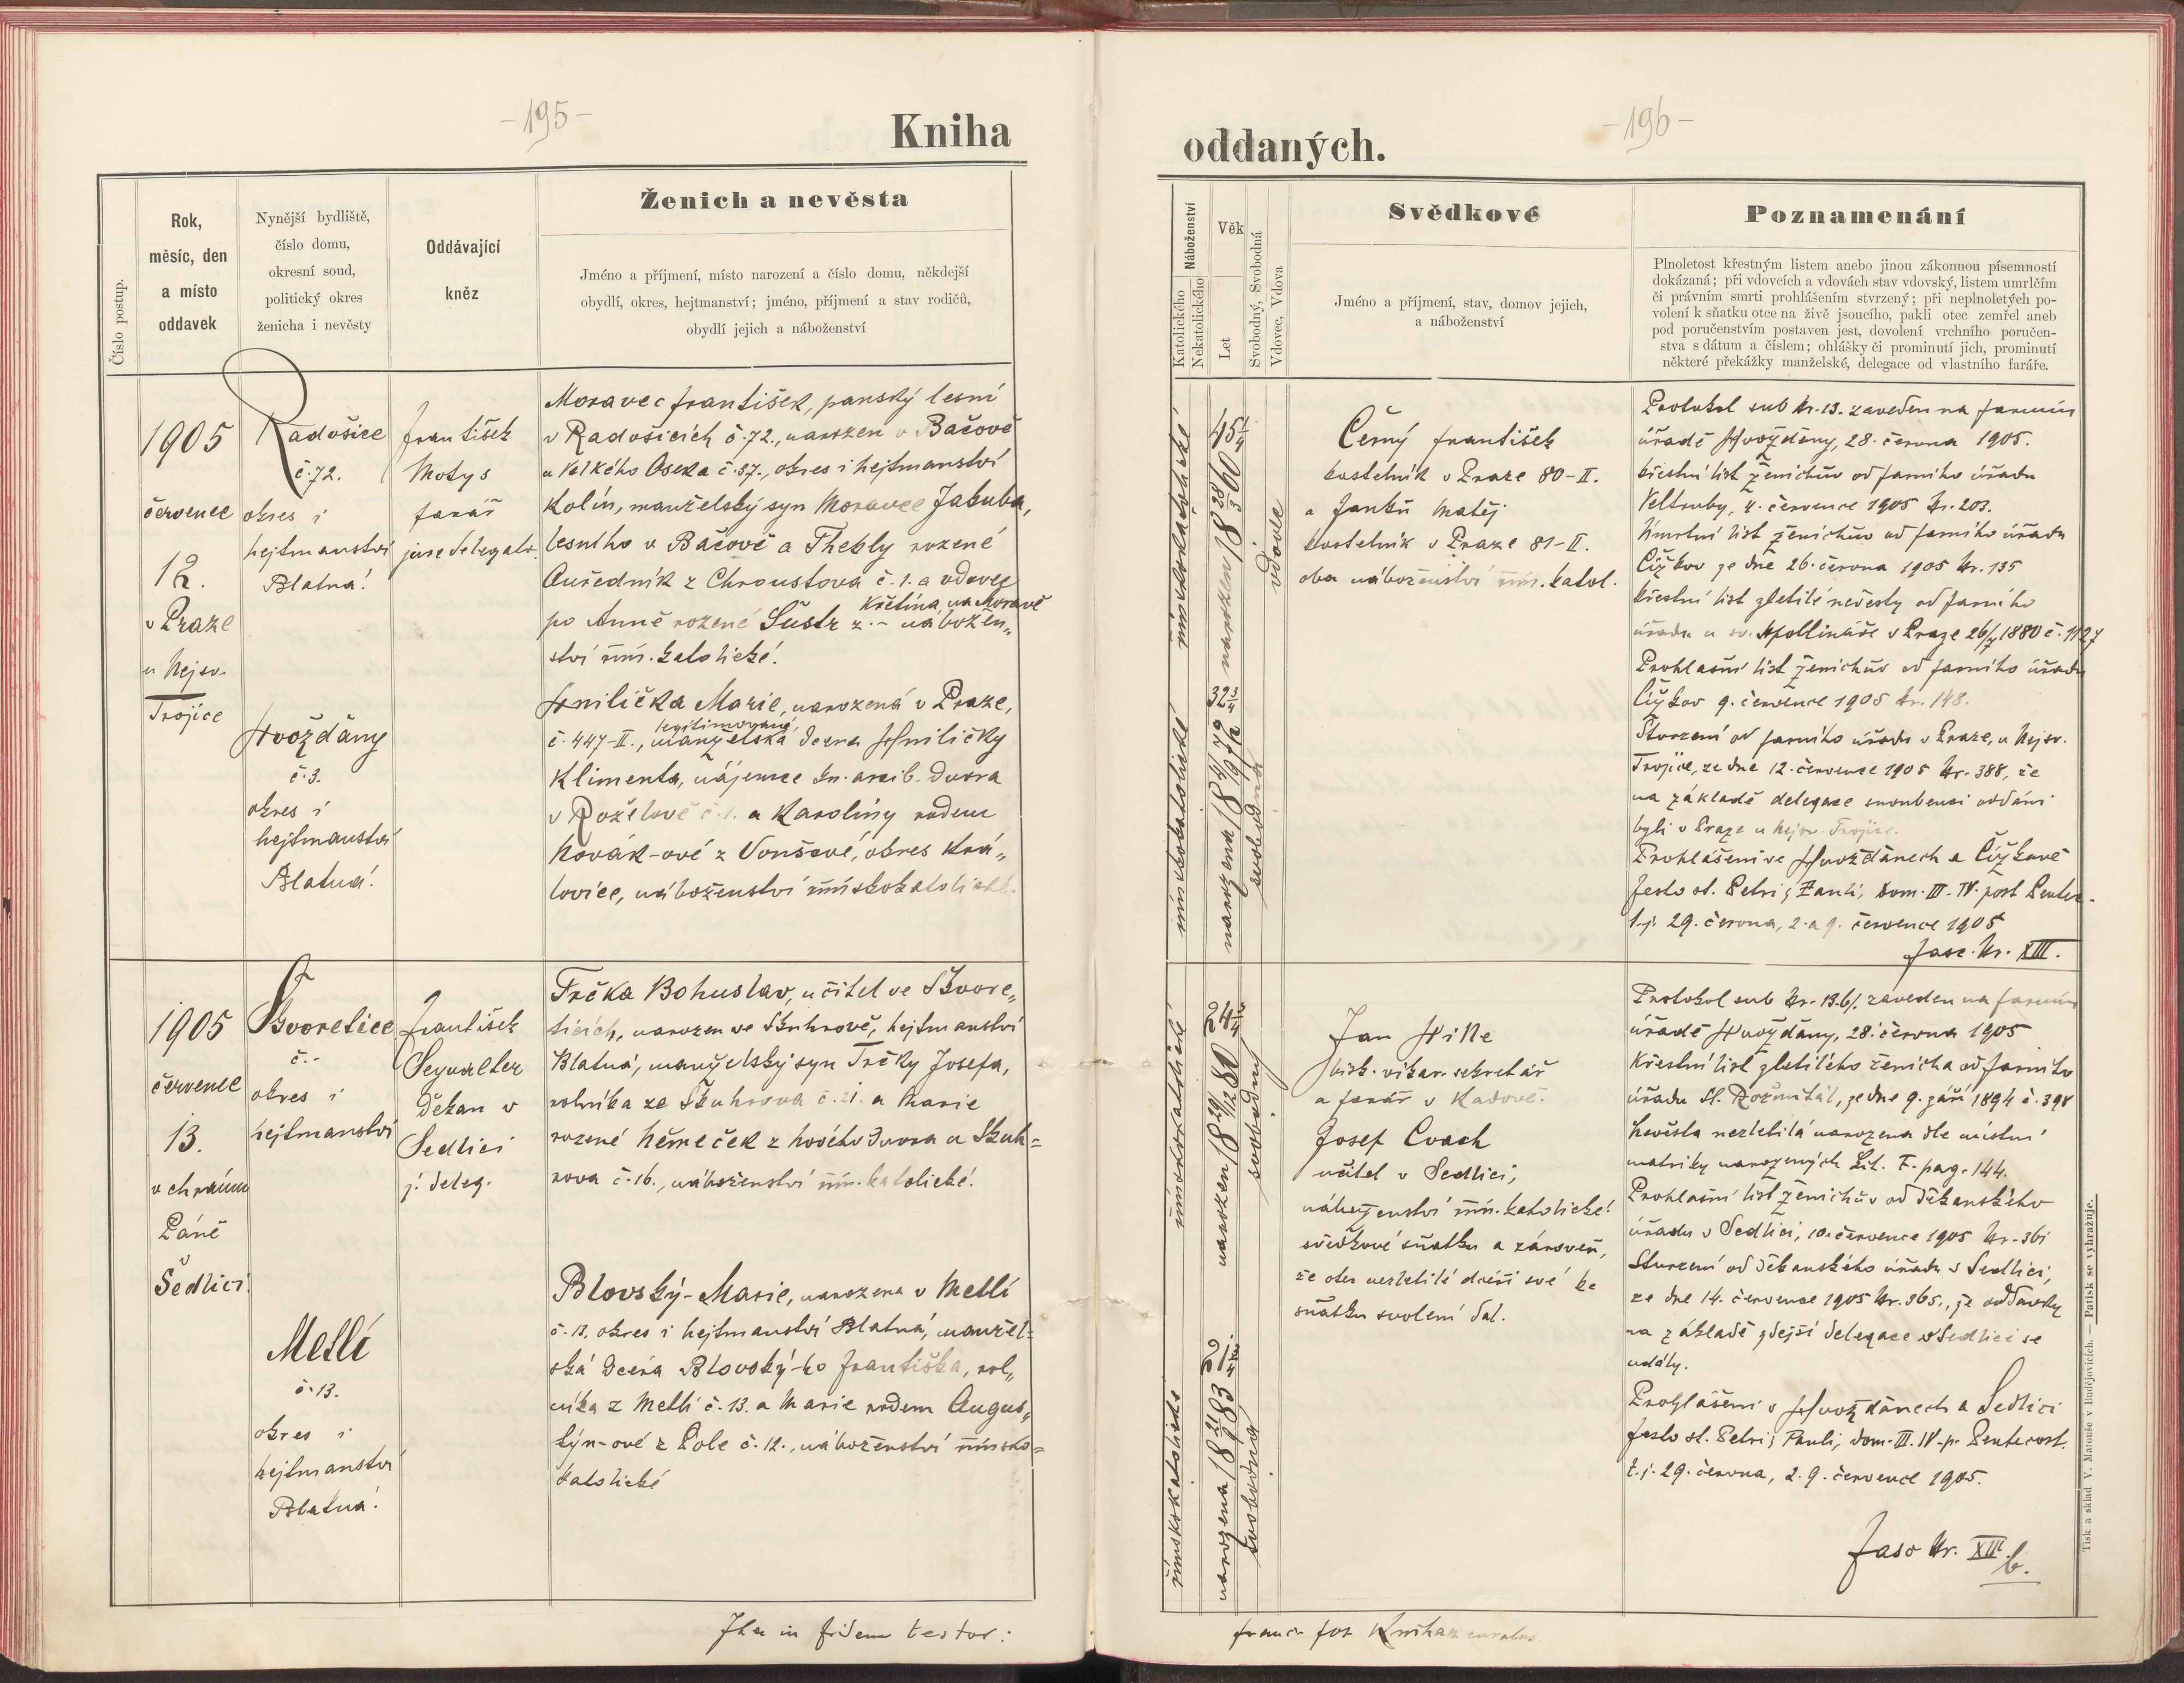 -195-
Kniha
Číslo postup.
Rok,
měsíc, den
a místo
oddavek
Nynější bydliště,
číslo domu,
okresní soud,
politický okres
ženicha i nevěsty
Oddávající
kněz
Ženich a nevěsta
Jméno a příjmení, místo narození a číslo domu, někdejší
obydlí, okres, hejtmanství; jméno, příjmení a stav rodičů,
obydlí jejich a náboženství
1905
července
12.
v Praze
u Nejsv.
Trojice
Radošice
č. 72.
okres i
hejtmanství
Blatná.
Hvožďány
č. 3.
okres i
hejtmanství
Blatná.
František
Motys
farář
jure delegato.
Moravec František, panský lesní
v Radošicích č. 72., narozen v Bačově
u Velkého Oseka č. 37., okres i hejtmanství
Kolín, manželský syn Moravce Jakuba,
lesního v Bačově a Thekly rozené
Auředník z Chroustova č. 1. a vdovec
Křetína na Moravě
po Anně rozené Šustr z - nábožen„
ství řím. katolické.
Hnilička Marie, narozená v Praze,
legitimovaná
č. 447-II., manželská dcera Hniličky
Klimenta, nájemce kn. arcib. dvora
v Roželově č. 1. a Karoliny rodem
Novák-ové z Vonšové, okres Krá„
lovice, náboženství římskokatolické.
1905
července
13.
v chrámu
Páně
v
Sedlici.
Škvoretice
č. -
okres i
hejtmanství
Metlí
č. 13.
okres i
hejtmanství
Blatná.
František
Seywalter
děkan v
Sedlici
j. deleg.
Trčka Bohuslav, učitel ve Škvore„
ticích, narozen ve Škuhrově, hejtmanství
Blatná, manželský syn Trčky Josefa,
rolníka ze Škuhrova č. 21. a Marie
rozené Němeček z Nového dvora u Škuh=
rova č. 16., náboženství řím. katolické.
Blovský-Marie, narozena v Metlí
č. 13, okres i hejtmanství Blatná, manžel=
ská dcera Blovský-ho Františka, rol„
níka z Metlí č. 13. a Marie rodem Augus„
týn-ové z Pole č. 12., náboženství římsko=
katolické
Ita in fidem testor:
-196-
oddaných.
Náboženství
Katolického
Nekatolického
Věk
Let
Svobodný, Svobodná
Vdovec, Vdova
Svědkové
Jméno a příjmení, stav, domov jejich,
a náboženství
Poznamenání
Plnoletost křestným listem anebo jinou zákonnou písemností
dokázaná; při vdovcích a vdovách stav vdovský, listem umrlčím
či právním smrti prohlášením stvrzený; při neplnoletých po-
volení k sňatku otce na živě jsoucího, pakli otec zemřel aneb
pod poručenstvím postaven jest, dovolení vrchního poručen-
stva s dátum a číslem; ohlášky či prominutí jich, prominutí
některé překážky manželské, delegace od vlastního faráře.
římskokatolické
45 1/4
narozen 18 28/3 60
vdovec
Černý František
kostelník v Praze 80-II.
a Janků Matěj
kostelník v Praze 81-II.
oba náboženství řím. katol.
římskokatolické
32 3/4
svobodná
Protokol sub Nr. 13. zaveden na farním
úřadě Hvožďany, 28. června 1905.
křestní list ženichův od farního úřadu
Veltruby, 4. července 1905 Nr. 203.
Úmrtní list ženichův od farního úřadu
Čížkov ze dne 26. června 1905 Nr. 135
křestní list zletilé nevěsty od farního
úřadu u sv. Apollináře v Praze 26/7 1880 č. 1127
Prohlašní list ženichův od farního úřadu
Čížkov 9. července 1905 Nr. 148.
Stvrzení od farního úřadu v Praze, u Nejsv.
Trojice, ze dne 12. července 1905 Nr. 388, že
na základě delegace snoubenci oddáni
byli v Praze u Nejsv. Trojice.
Prohlášeni ve Hvožďanech a Čížkově
festo st. Petri & Pauli, Dom. III. IV. post Pentec.
t. j. 29. června, 2. a 9. července 1905
Fasc. Nr. XIII.
římskokatolické
24
narozen 18 29/12 80
svobodný
Jan Hille
bisk. vikar. sekretář
a farář v Kadově.
Josef Cvach
učitel v Sedlici,
náboženství řím. katolické.
svědkové sňatku a zároveň,
že otec nezletilé dceři své ke
sňatku svolení dal.
římskokatolické
21
narozena 18 83
svobodná
Protokol sub Nr. 13.b/. zaveden na farním
úřadě Hvožďany, 28. června 1905
Křestní list zletilého ženicha od farního
úřadu St. Rožmitál, ze dne 9. září 1894 č. 398
Nevěsta nezletilá narozena dle místní
matriky narozených Lit. F. pag. 144.
Prohlašní list ženichův od děkanského
úřadu v Sedlici, 10. července 1905 Nr. 361
Stvrzení od děkanského úřadu v Sedlici,
ze dne 14. července 1905 Nr. 365., že oddavky
na základě zdejší delegace v Sedlici se
udály.
Prohlášeni v Hvožďanech a Sedlici
festo st. Petri & Pauli, dom. III. IV. p. Pentecost.
t. j. 29. června, 2. 9. července 1905.
Fasc Nr. XIII.
b.
Franc. Jos. curatus
Tisk a sklad V. Matouše v Budějovicích. — Patisk se vyhražuje.